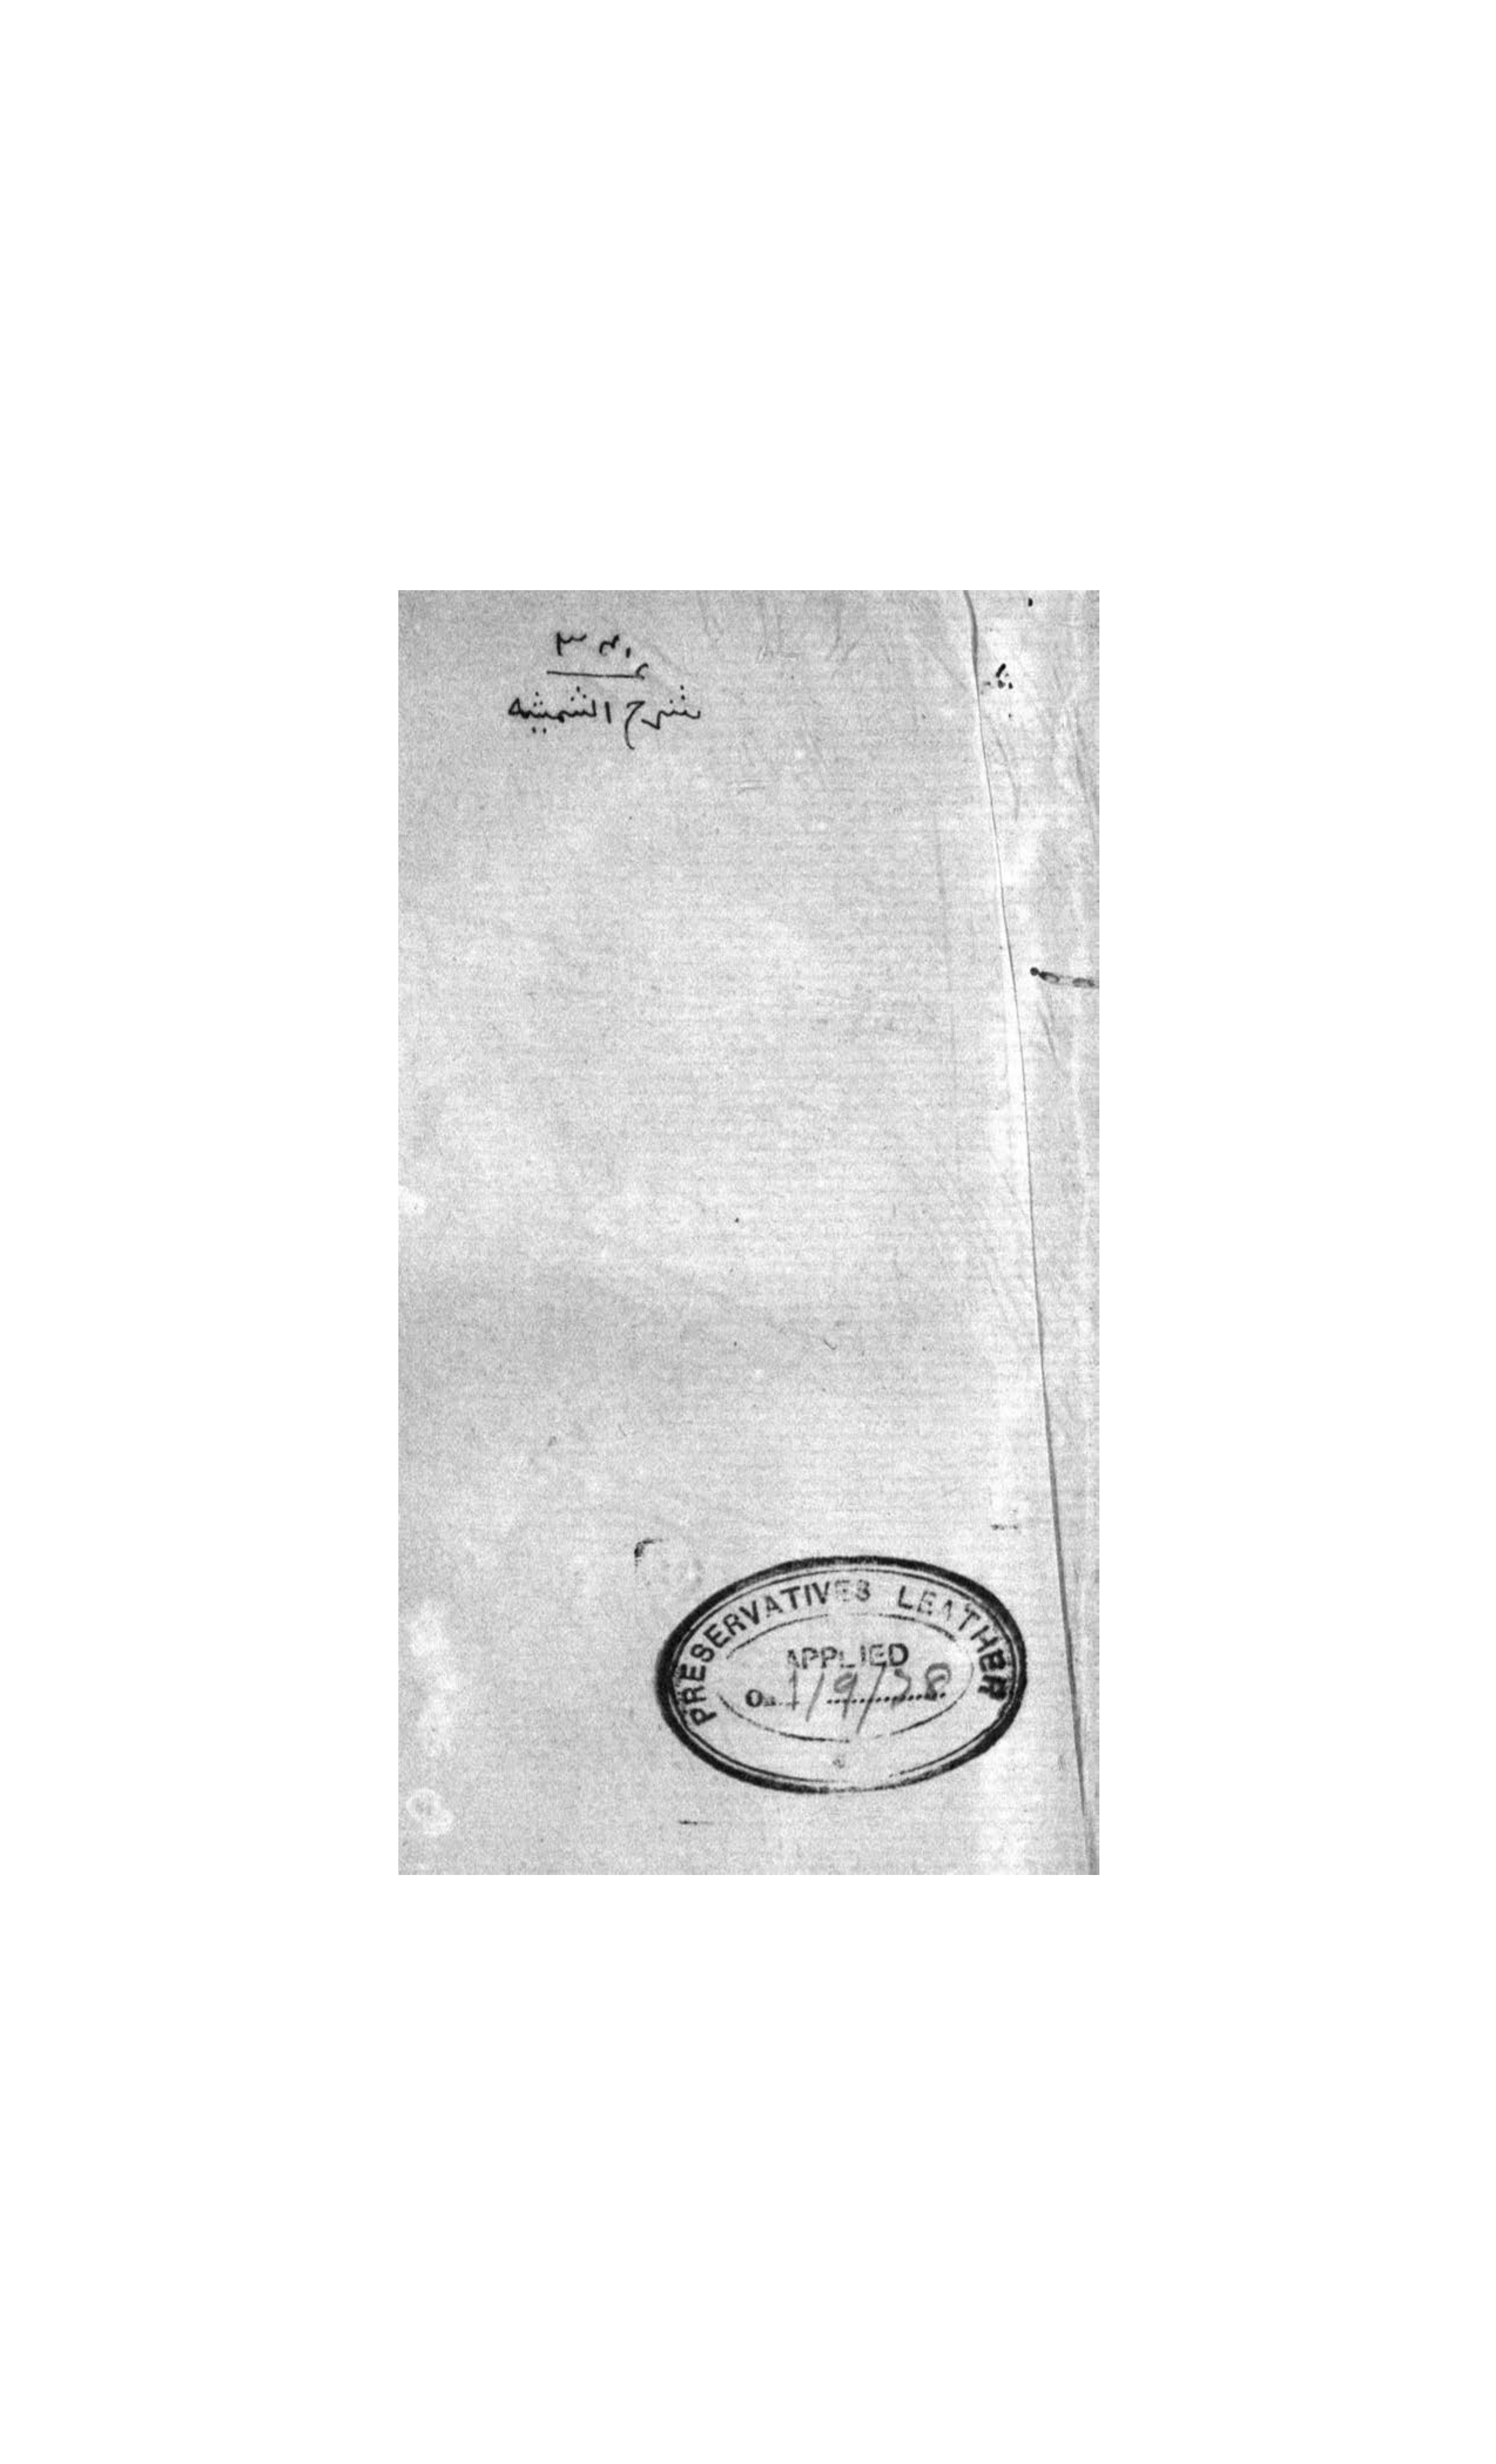 شرح الشمسيه
PRESERVATIVES LEATHER
APPLIED
On 1/9/38